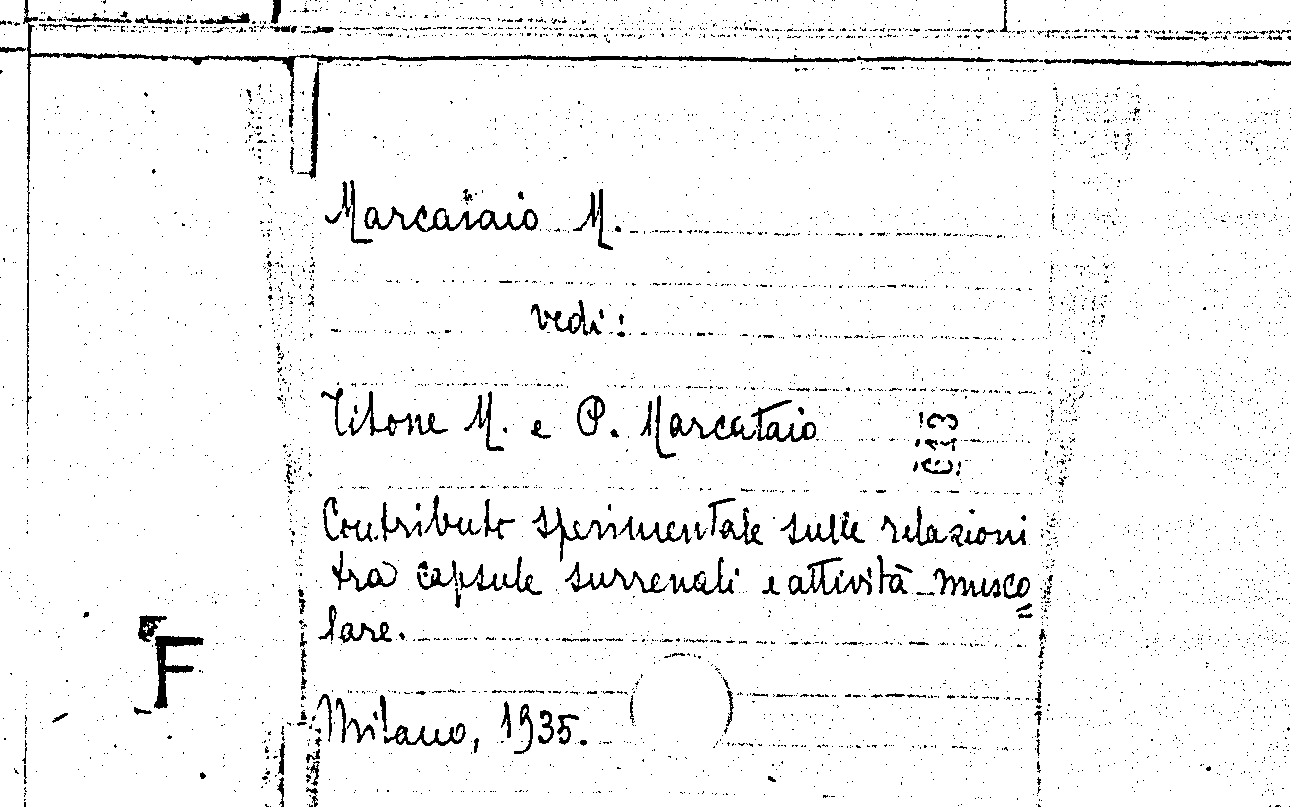 Marcaiaio M.
vedi:
Titone M. e P. Marcataio
Contributo sperimentale sulle relazioni
tra capsule surrenali e attività musco=
lare.
F
Milano, 1935.